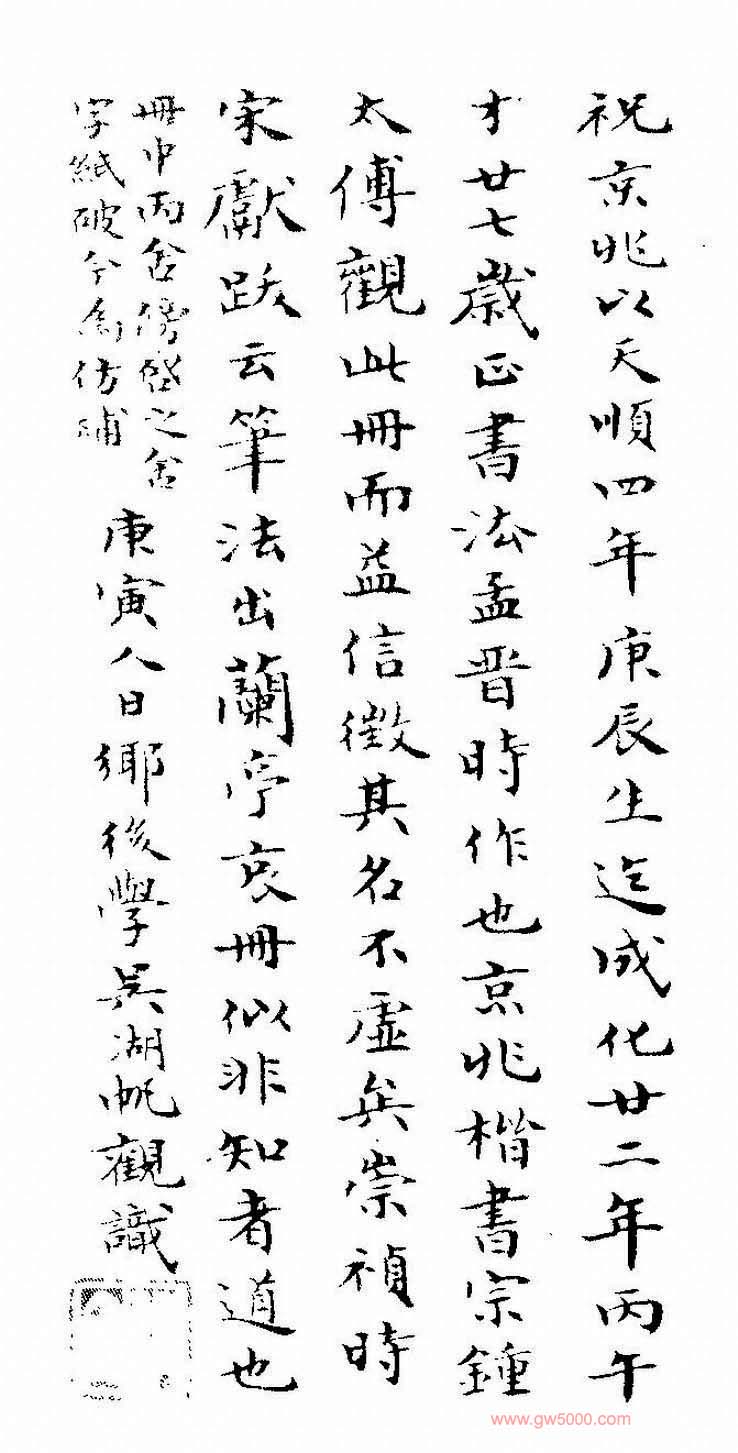 祝京兆以天順四年庚辰生迄成化廿二年丙午
才廿七歲正書法孟晋時作也京兆楷書宗鍾
太傅觀此冊而益信徵其名不虛矣崇禎時
宋獻跋云筆法出蘭亭哀冊似非知者道也
冊中丙舍傍啓之舍
字紙破今為仿補
庚寅人日鄉後學吳湖帆觀識
www.gw5000.com